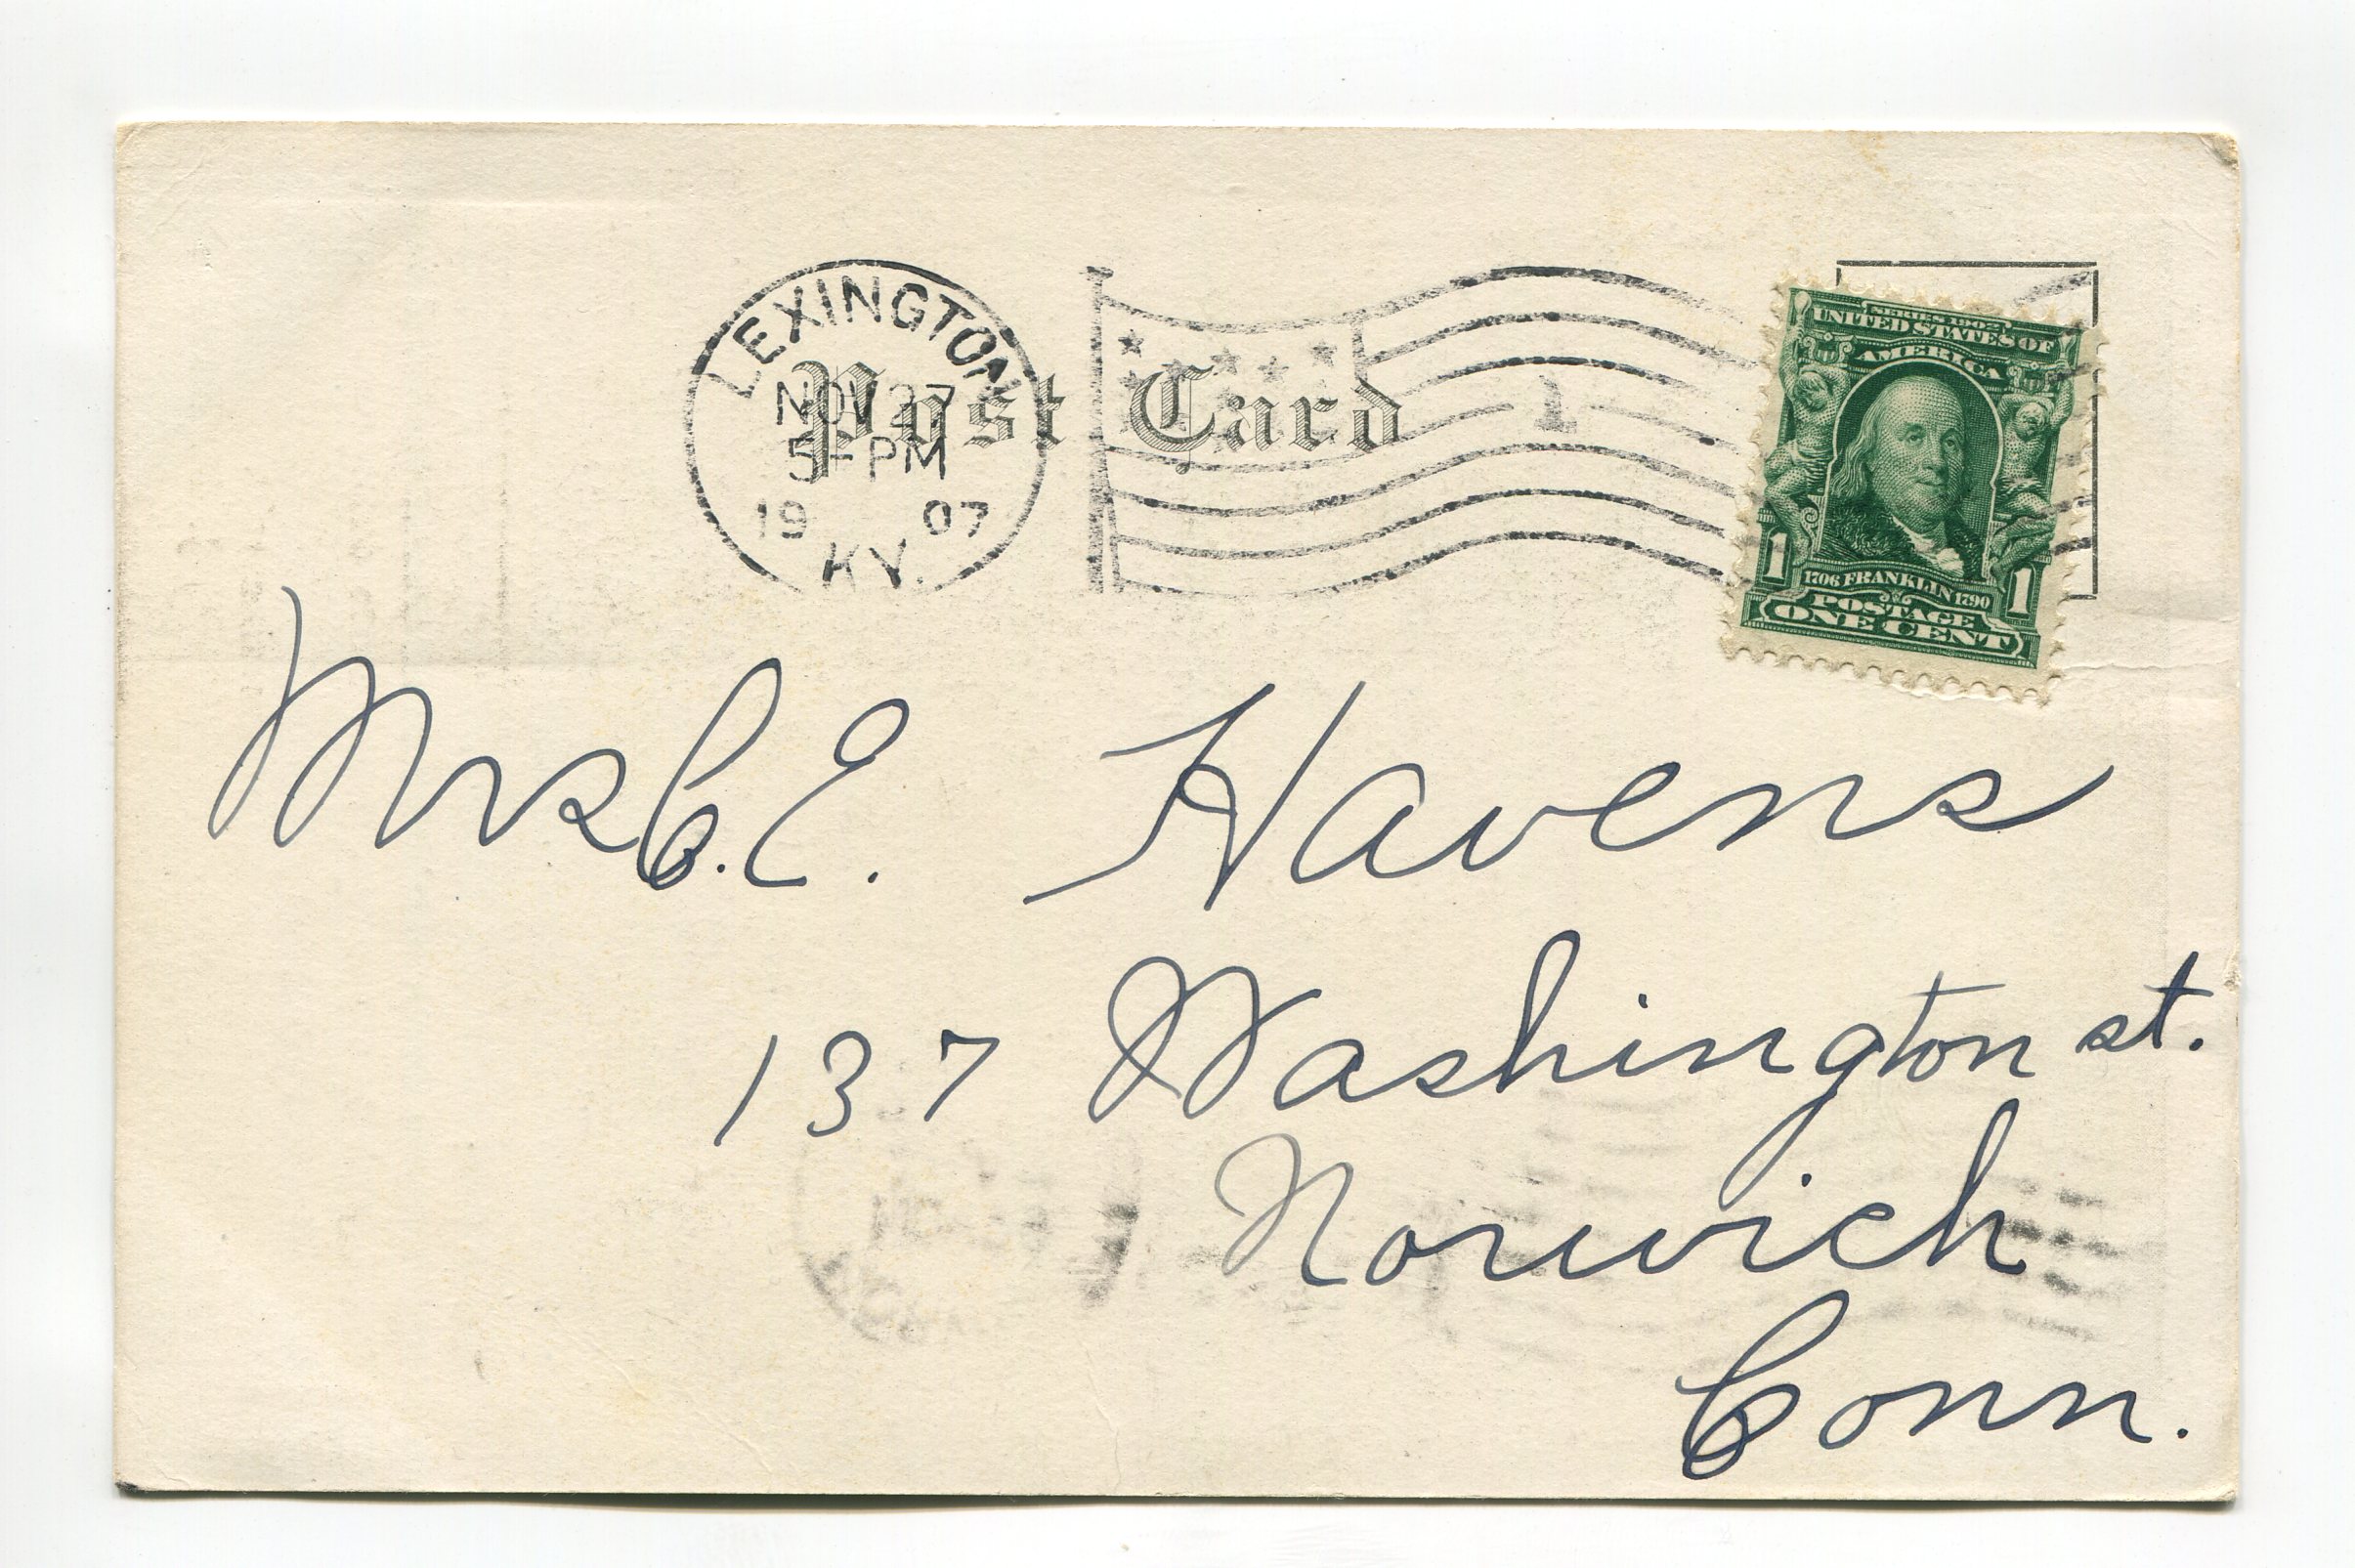 LEXINGTON
NOV 27
5- PM
19 07
KY.
Post Card
1
SERIES 1902
UNITED STATES OF
AMERICA
1706 FRANKLIN 1790
1 1
POSTAGE
ONE CENT
Mrs C. E. Havens
137 Washington st.
Norwich
Conn.